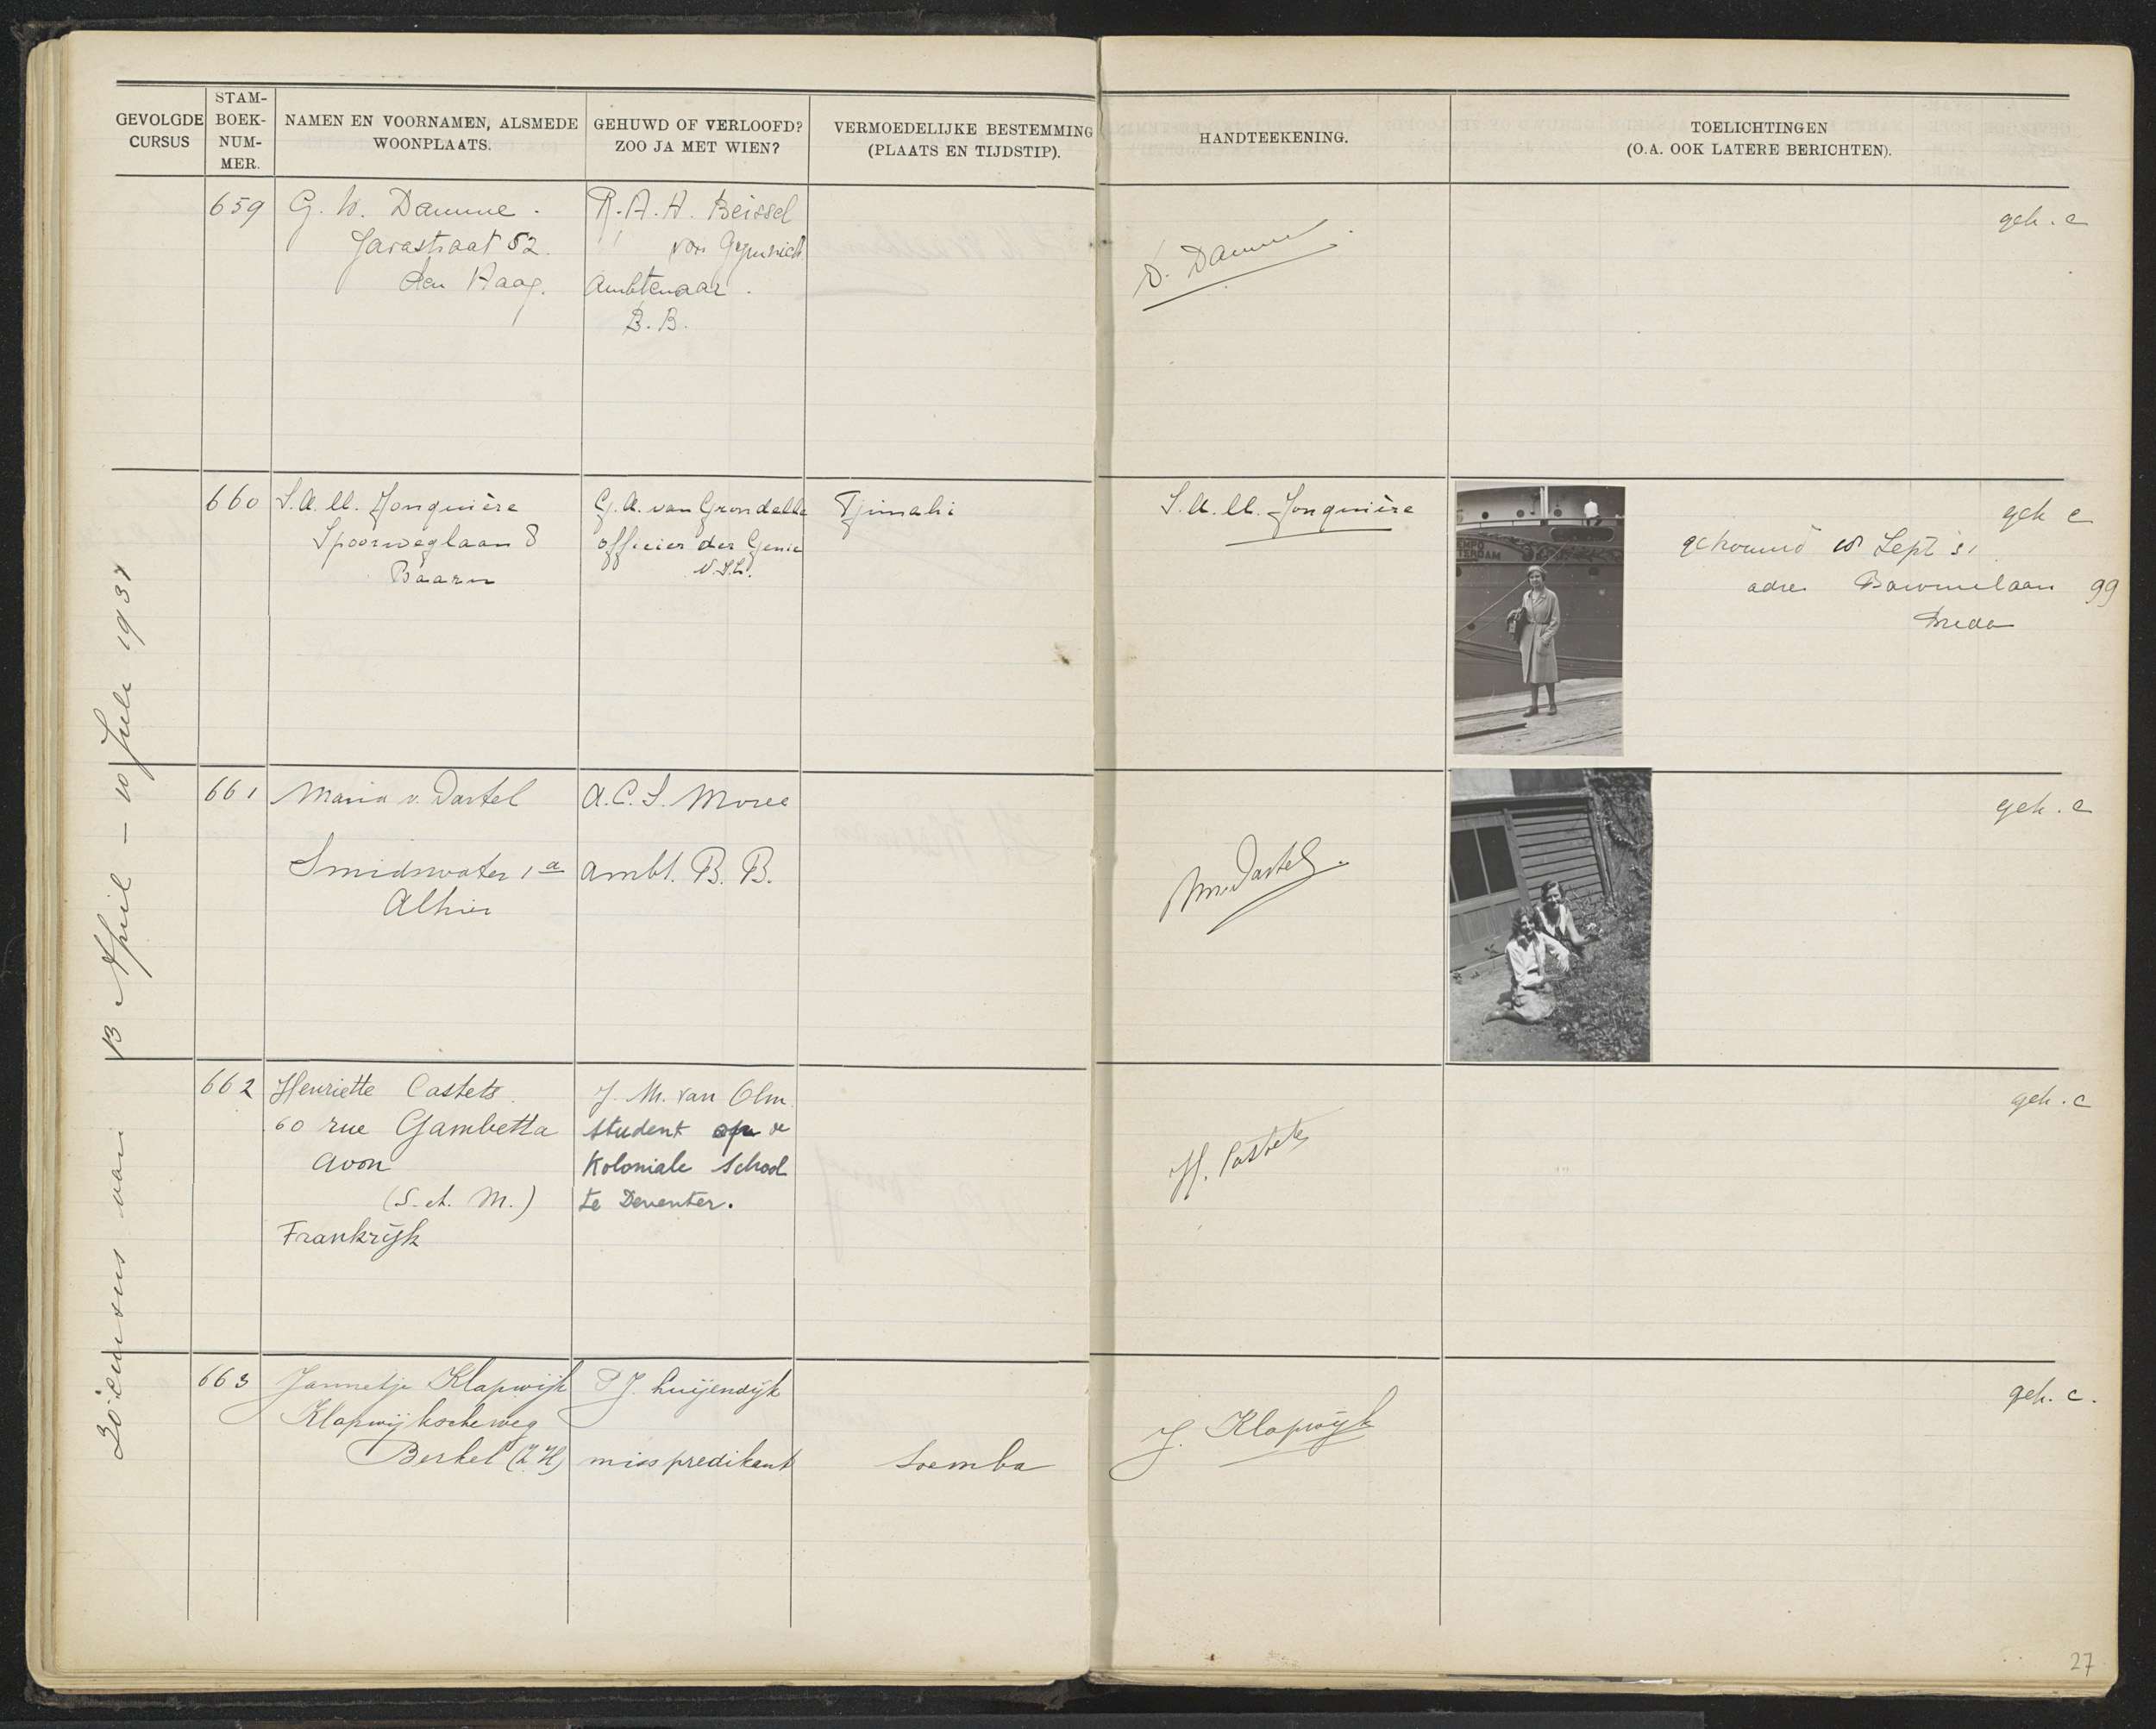 GEVOLGDE
CURSUS
STAM-
BOEK-
NUM-
MER.
NAMEN EN VOORNAMEN, ALSMEDE
WOONPLAATS.
GEHUWD OF VERLOOFD?
ZOO JA MET WIEN?
VERMOEDELIJKE BESTEMMING
(PLAATS EN TIJDSTIP).
HANDTEEKENING.
TOELICHTINGEN
(O.A. OOK LATERE BERICHTEN).
30e cursus van 13 April – 10 Juli 1931
659
G. W. Damme.
Javastraat 52.
den Haag.
R.A.H. Beissel
von Gymnich
Ambtenaar.
B.B.
D. Damme
geh. c
660
S.A.M. Jonquière
Spoorweglaan 8
Baarn
G.A. van Grondelle
officier der Genie
N.I.L.
Tjimahi
S.A.M. Jonquière
TERDAM
geh c
gehuwd Sept 31
adres laan 99
Breda
661
Maria v. Dartel
Smidswater 1a
Alhier
A.C.S. Moree
ambt. B.B.
M v Dartel.
geh. c
662
Henriette Castets.
60 rue Gambetta
Avon
(S. et. M.)
Frankrijk
J. M. van Olm.
student op de
Koloniale School
te Deventer.
H. Castets
geh. c
663
Jannetje Klapwijk
Klapwijkscheweg
Berkel (Z.H)
P.J. Luijendijk
miss predikant
Soemba
J. Klapwijk
geh. c.
27